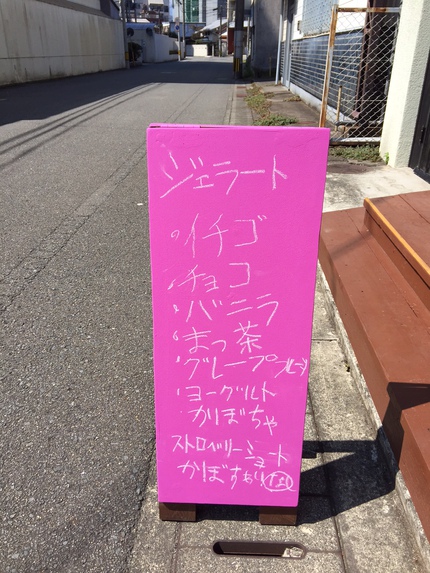 ジェラート
・イチゴ
・チョコ
・バニラ
・まっ茶
・グレープフルーツ
・ヨーグルト
・かぼちゃ
ストロベリーショート
かぼす